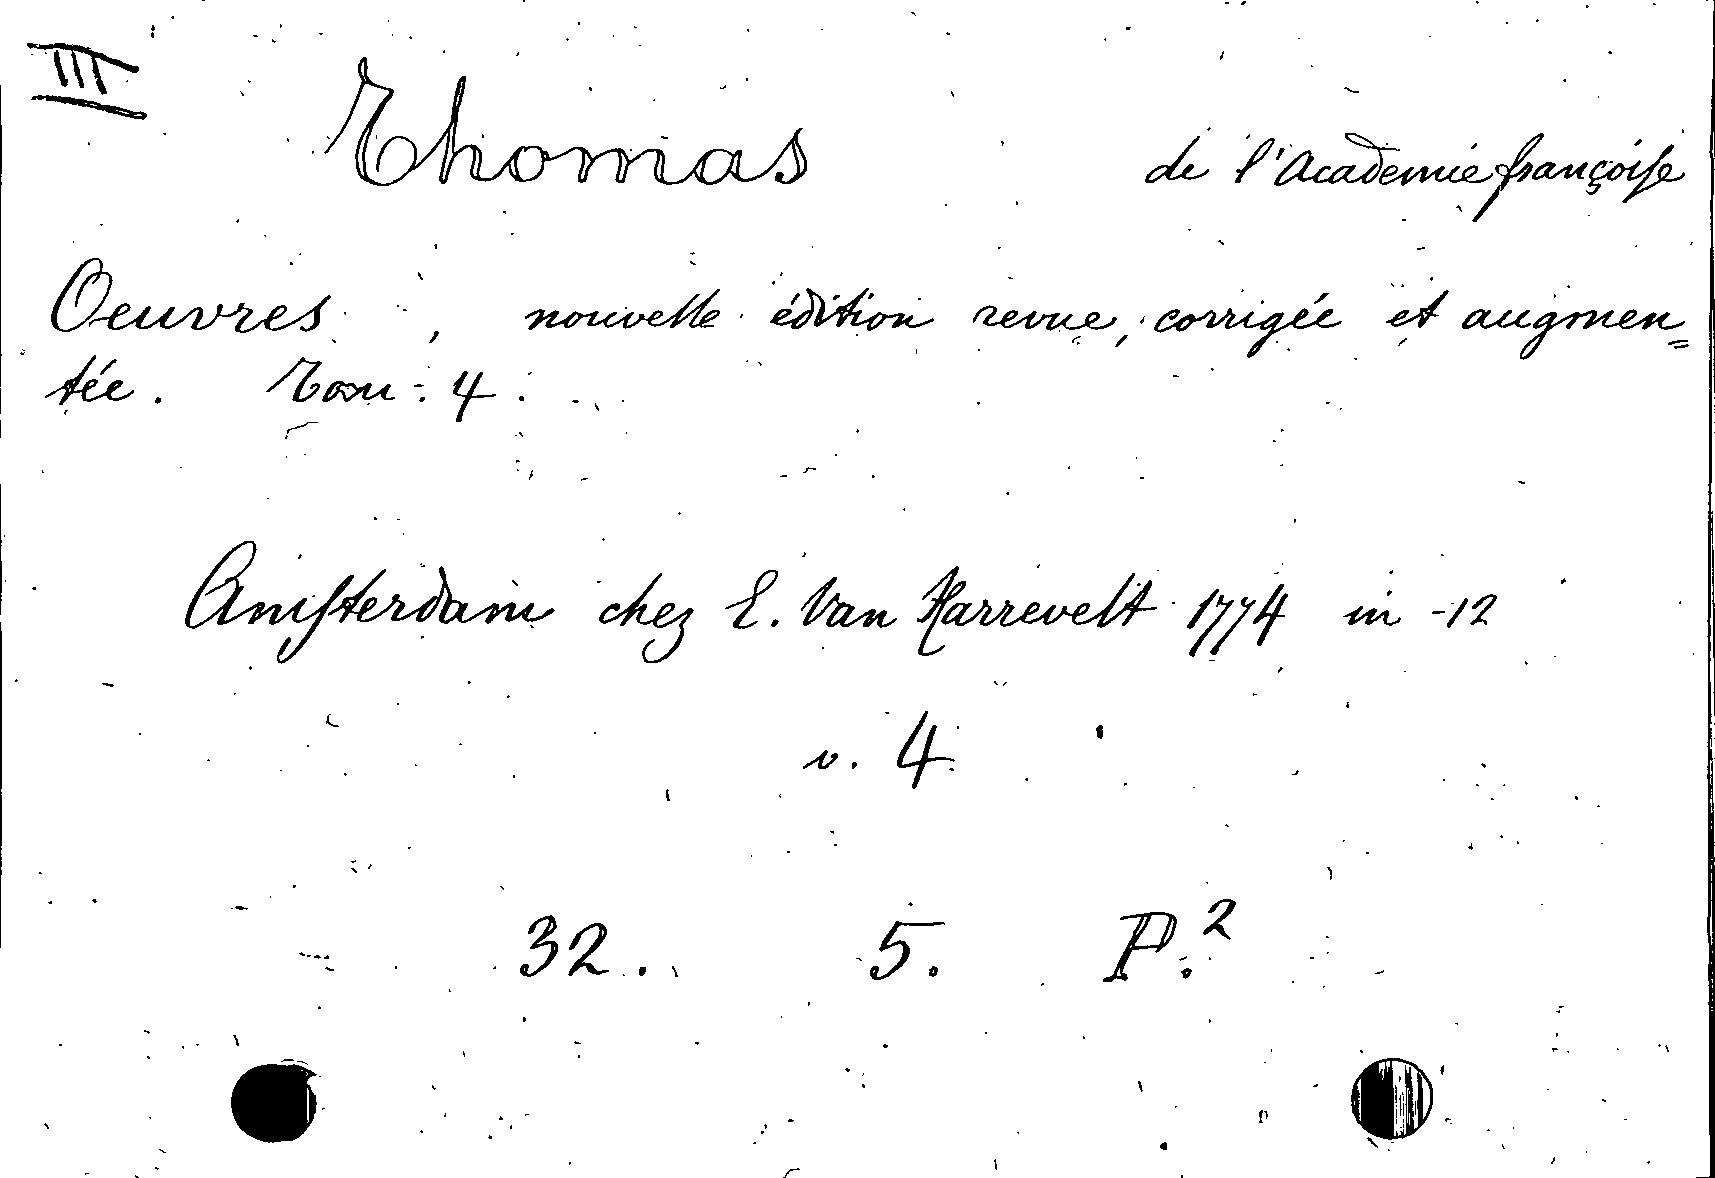 III
Thomas de l'Academie françoise
Oeuvres, nouvelle édition revue, corrigée et augmen=
tée. Tom. 4.
Amsterdam chez E. Van Harrevelt 1774 in-12
v. 4
32. 5. P.²